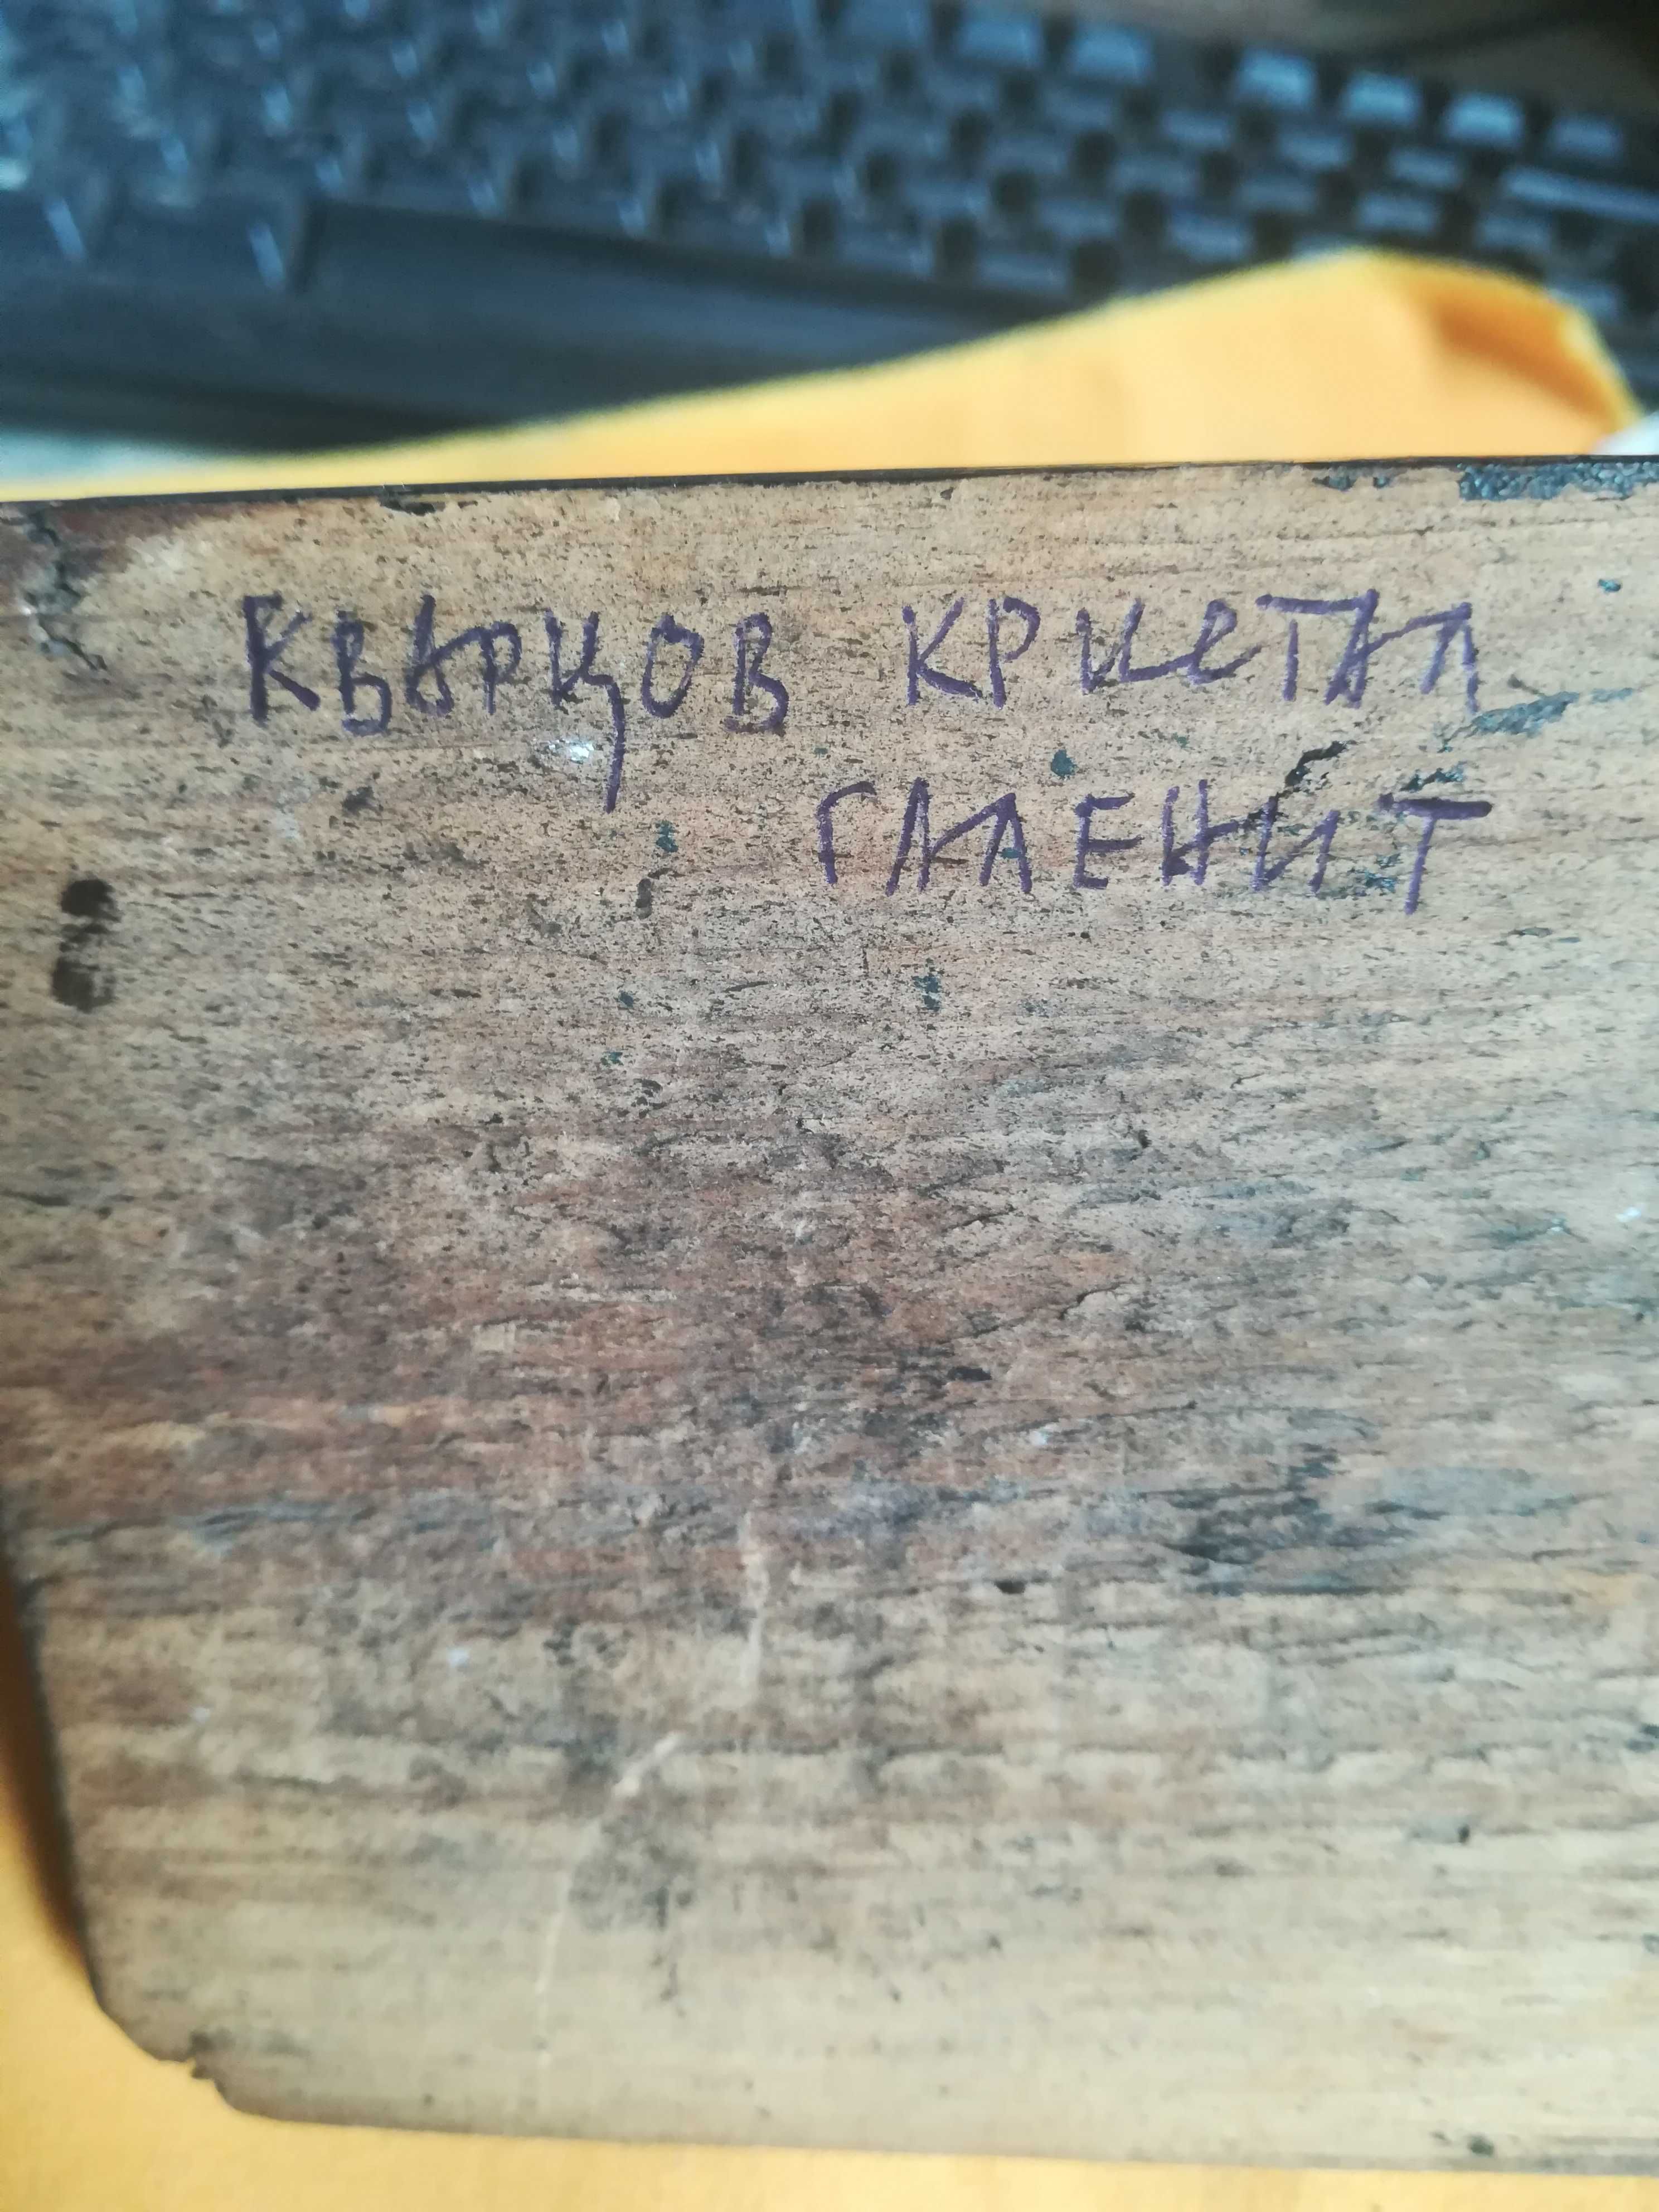 КВАРЦОВ КРИСТАЛ
ГАЛЕНИТ